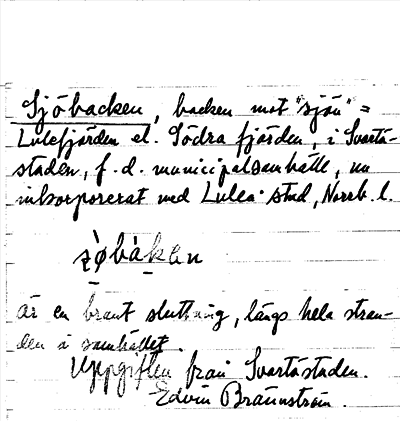 Sjöbacken, backen mot "sjön" =
Lulefjärden el. Södra fjärden, i Svartö-
staden, f.d. municipalsamhälle, nu
inkorporerat med Luleå stad, Norrb. l.
är en brant sluttning, längs hela stran-
den i samhället.
Uppgiften från Svartöstaden.
Edvin Brännström.